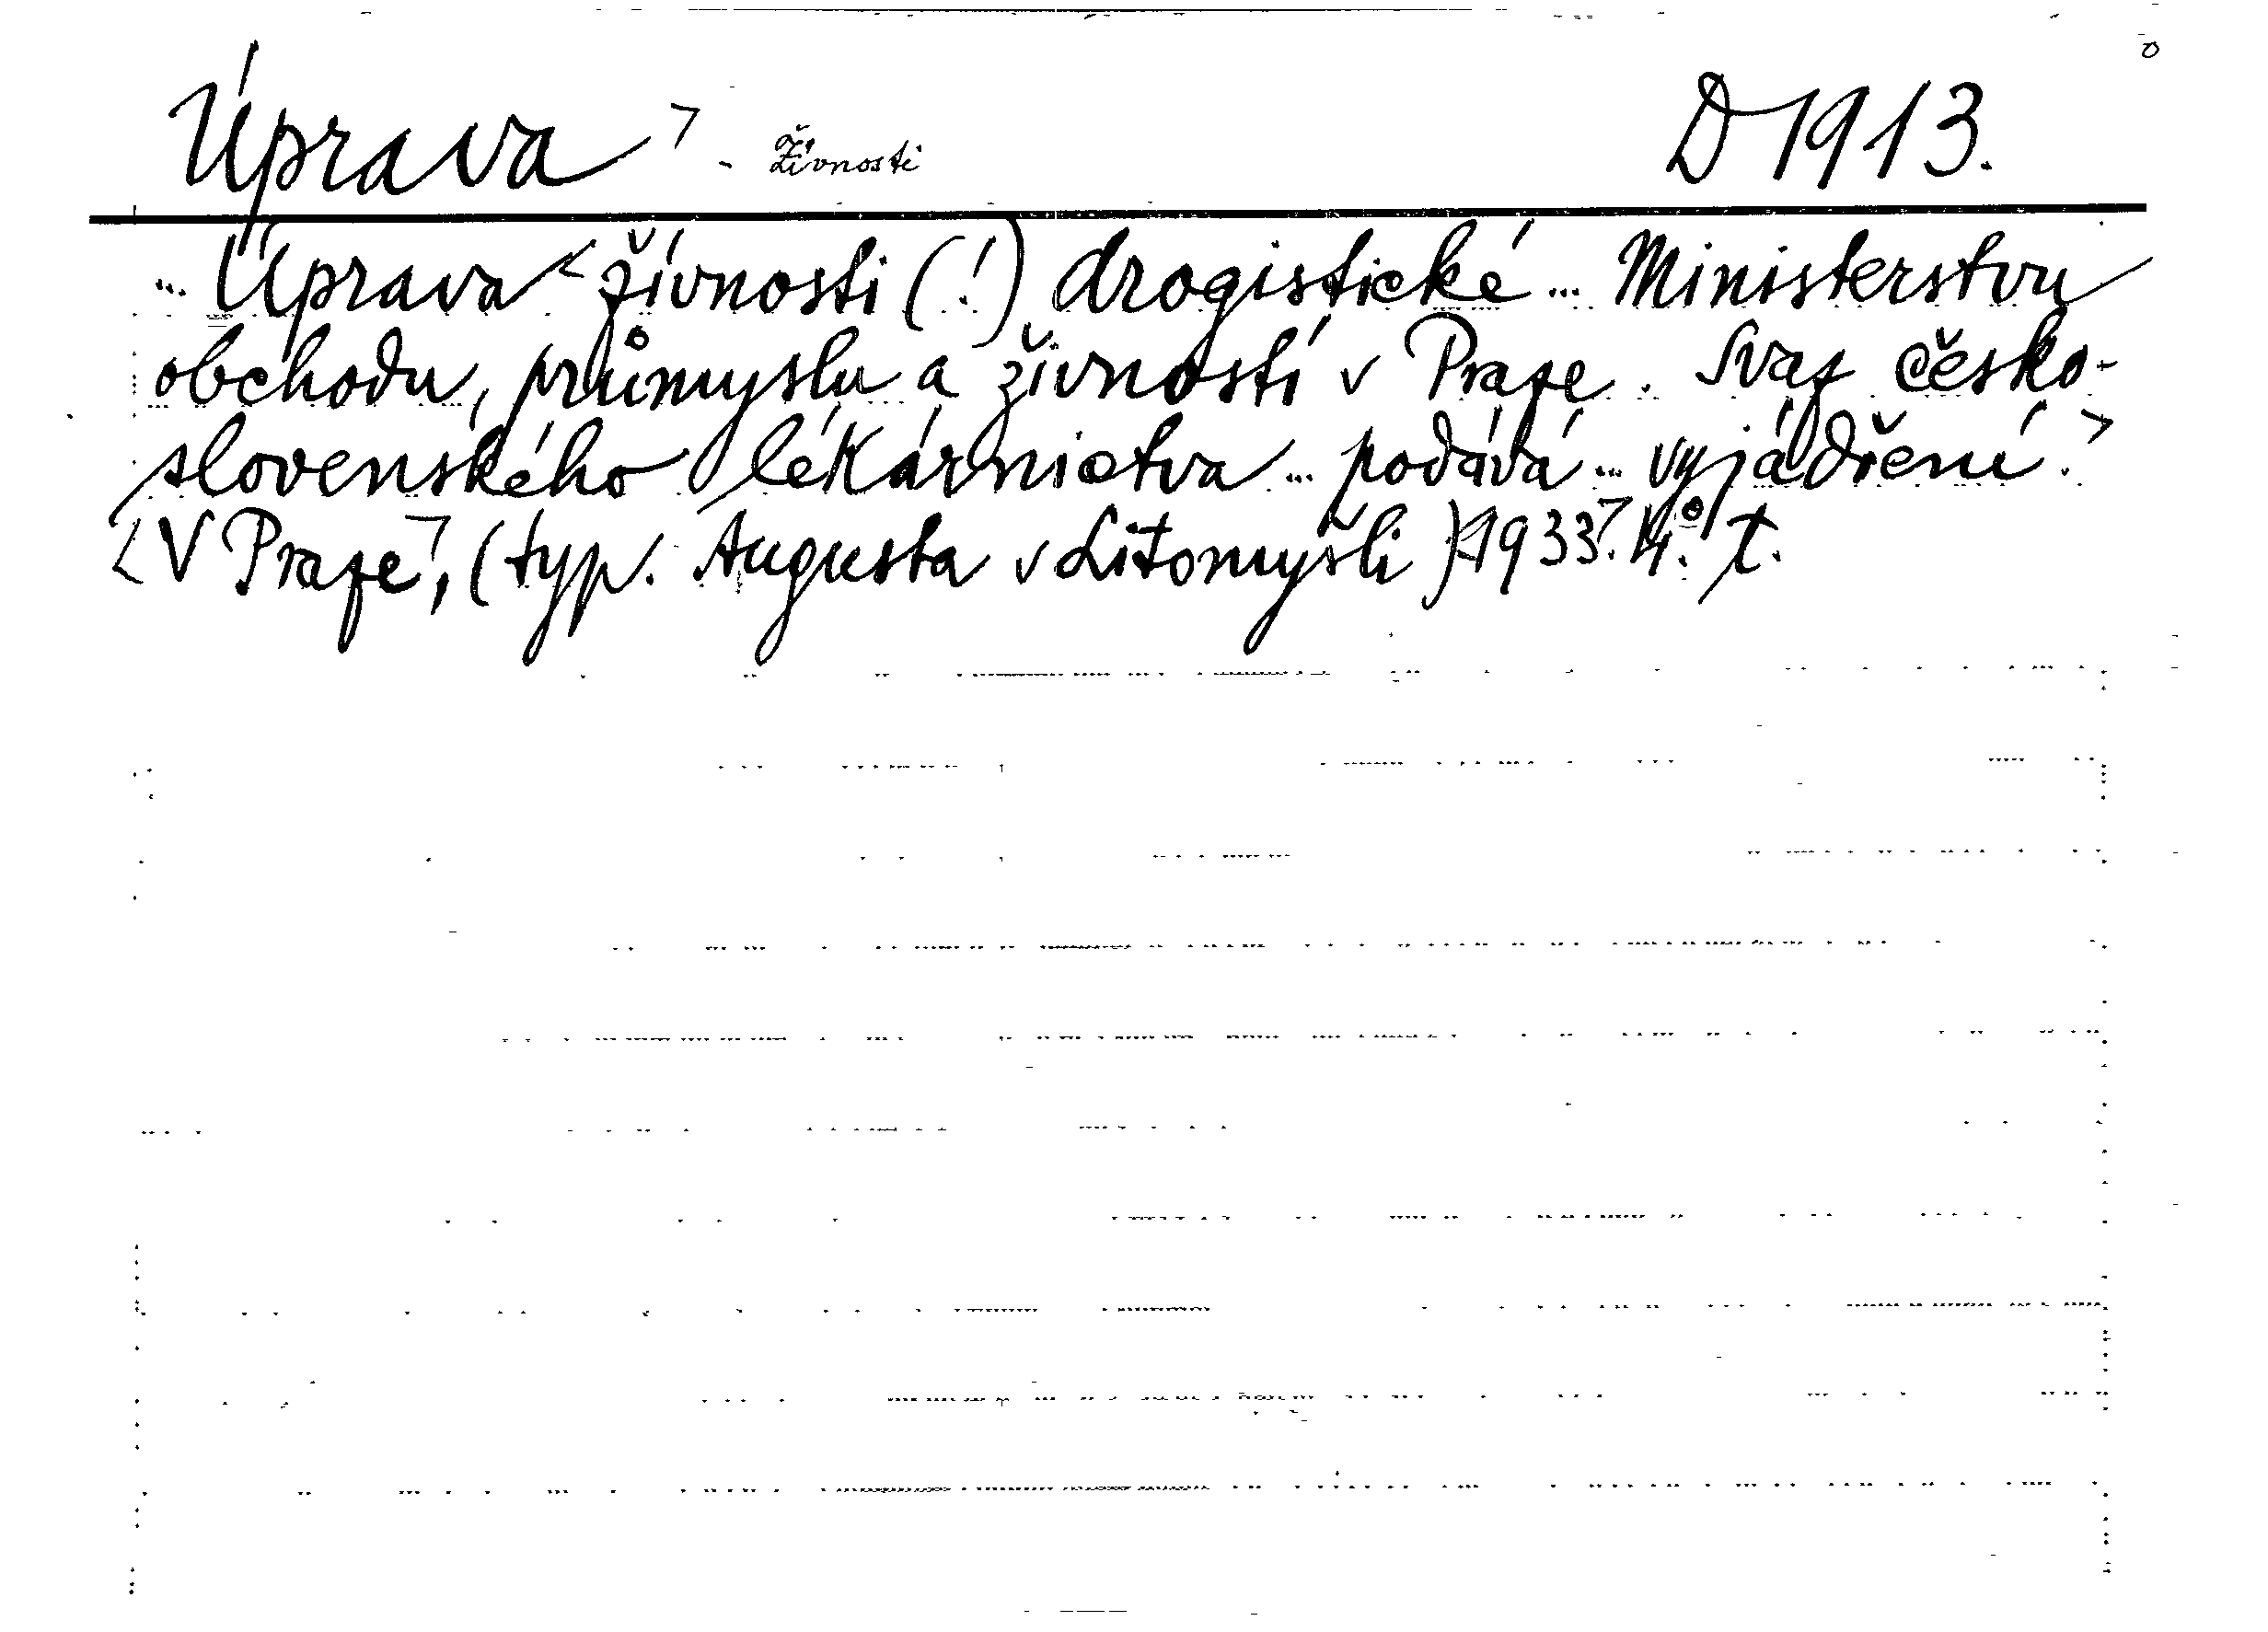 Úprava > - Živnosti D 1913.
... Úprava < živnosti (!) drogistické ... Ministerstvu
obchodu, průmyslu a živností v Praze. Svaz česko-
slovenského lékárnictva ... podává ... vyjádření. >
< V Praze >, (typ. Augusta v Litomyšli) < 1933 >. 4°. T.